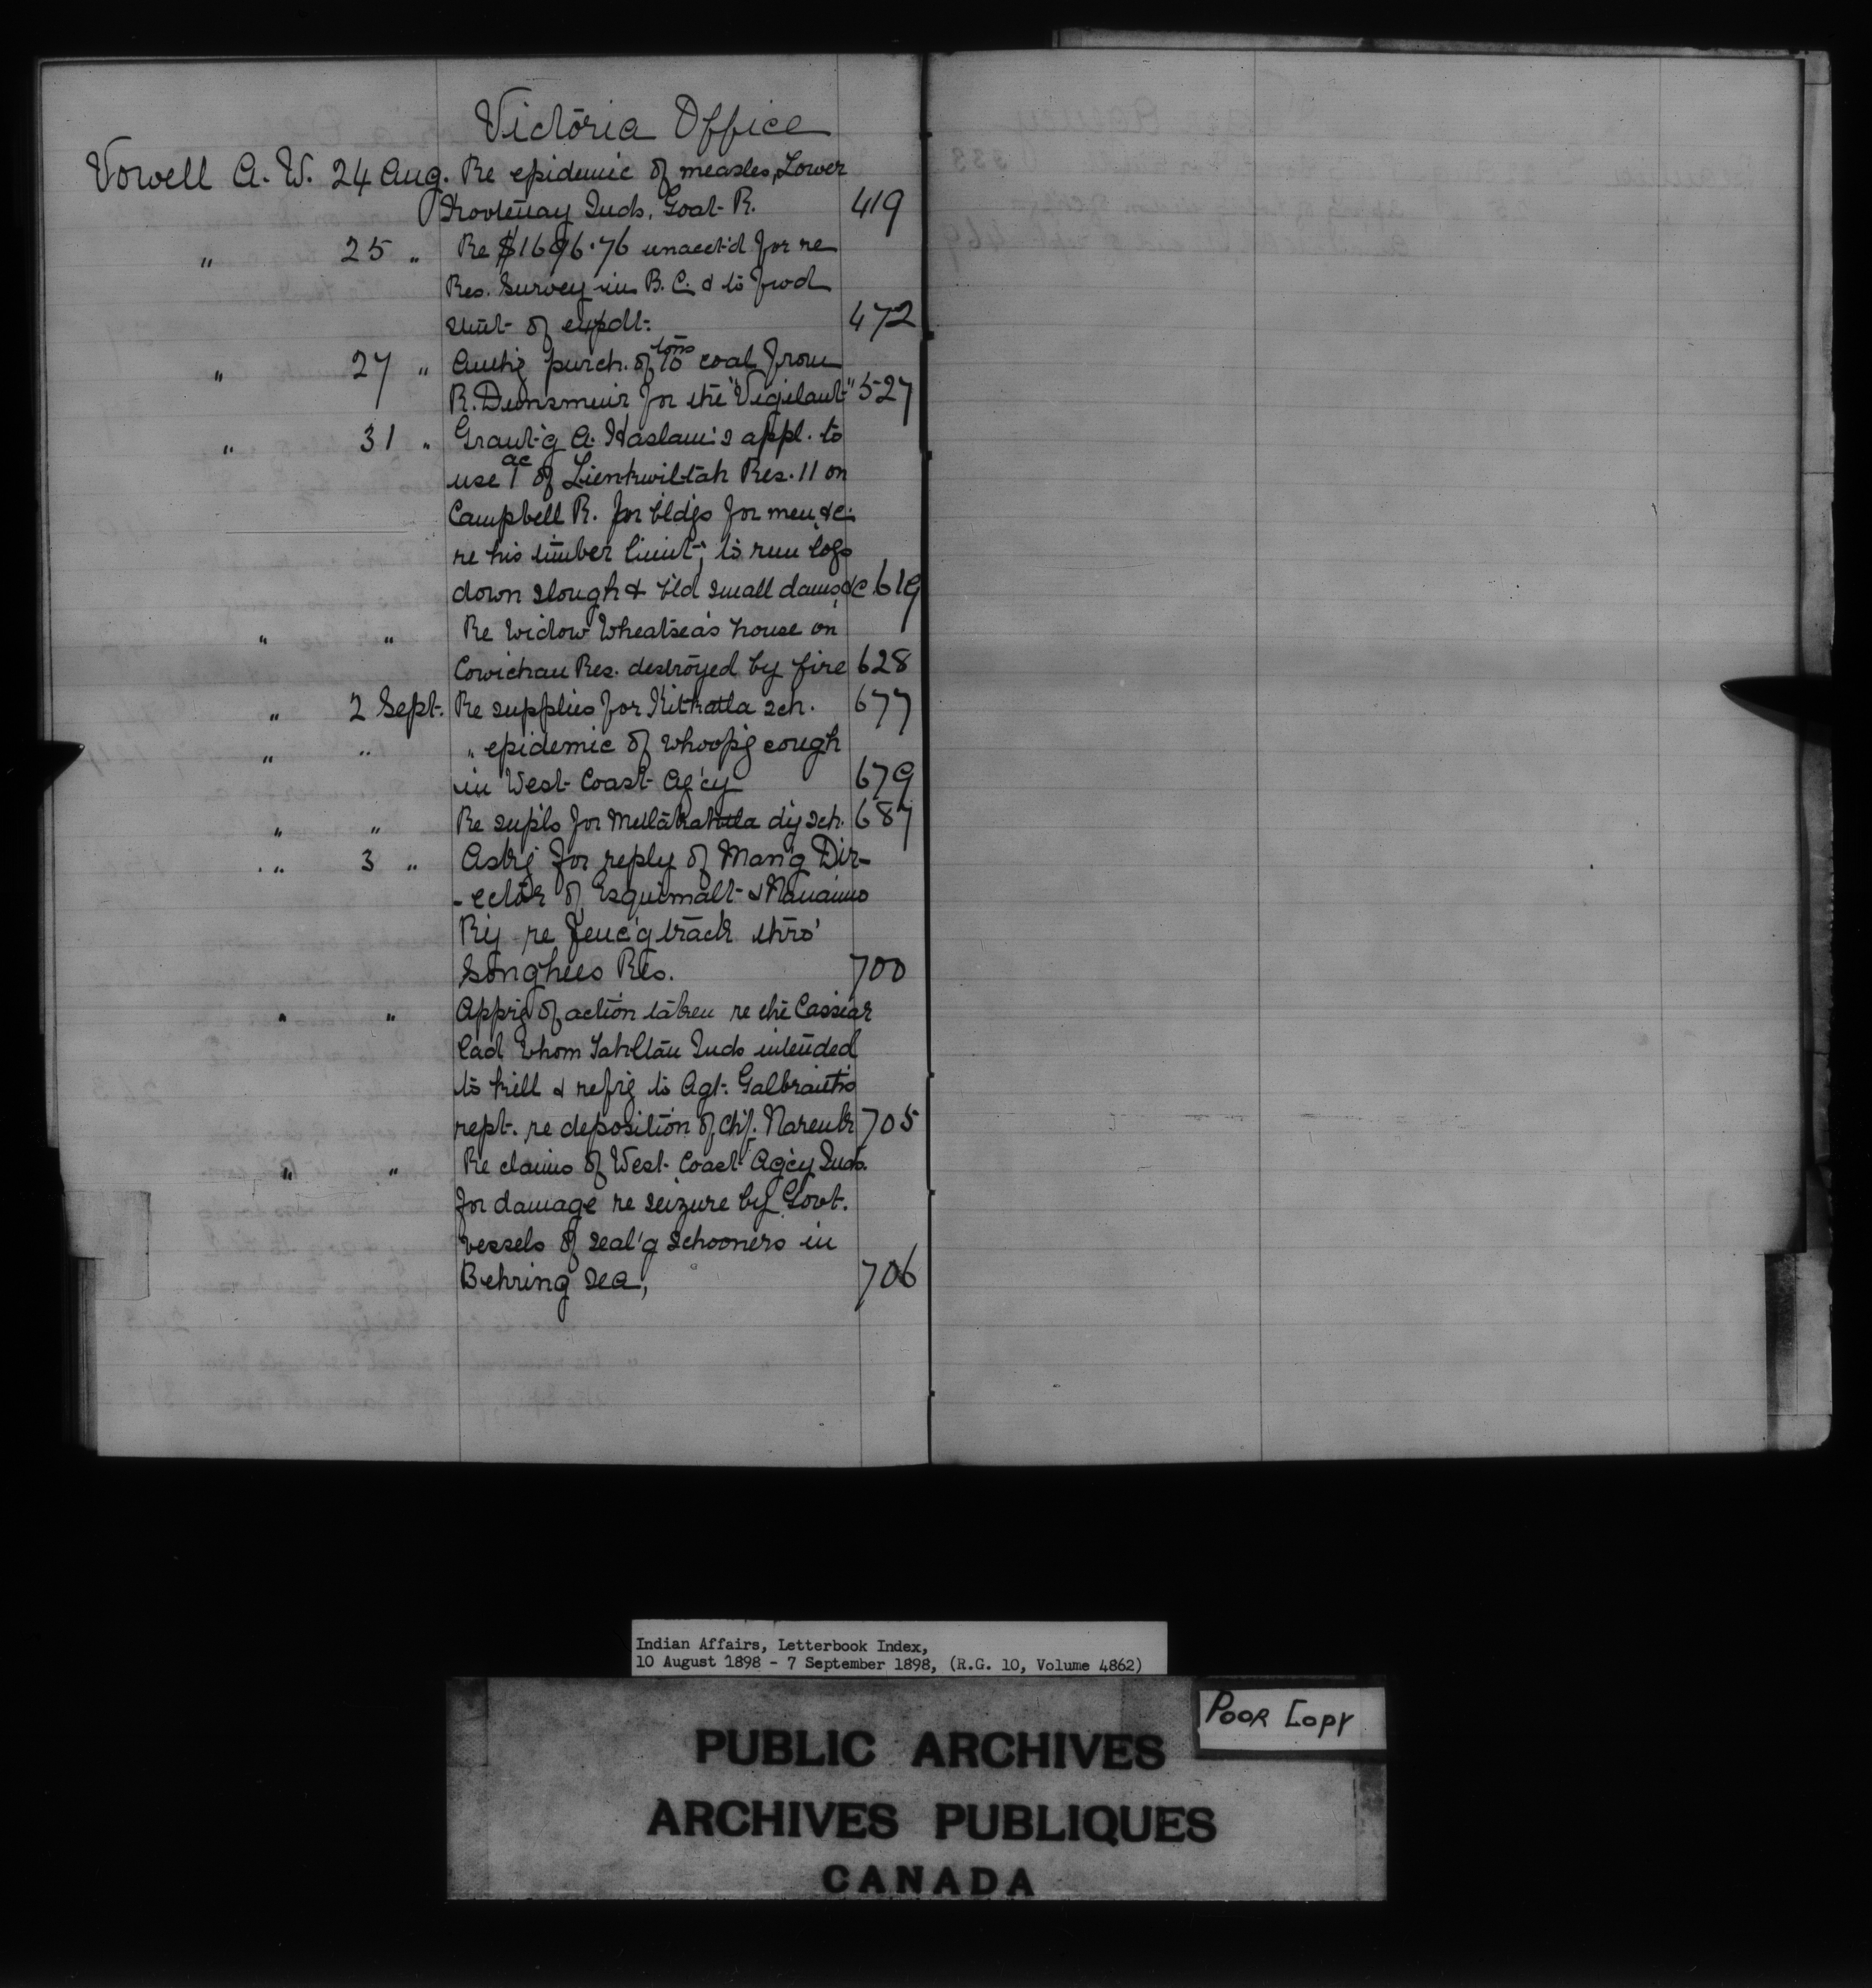 Victoria Office
Vowell A. W. 24 Aug. Re epidemic of measles, Lower
Kootenay Inds, Goat R. 419
" 25 " Re $1696.76 unacct'd for re
Res. Survey in B. C. & to fwd
stmt of expdt. 472
" 27 " Auth'g purch. of 10 tons coal from
R. Dunsmuir for the "Vigilant" 527
" 31 " Grant'g A. Haslam's appl. to
use 1 ac of Lienkwiltah Res. 11 on
Campbell R. for bldgs for men, &c.
re his timber limit; to run logs
down slough & b'ld small dams, &c 619
" " Re Widow Wheatsea's house on
Cowichan Res. destroyed by fire 628
" 2 Sept. Re supplies for Kitkatla sch. 677
" " " epidemic of whoop'g cough
in West Coast Ag'cy 679
" " Re supls for Metlakahtla dy sch. 687
" 3 " Ask'g for reply of Man'g Dir-
-ector of Esquimalt & Nanaimo
Ry re fenc'g track thro'
Songhees Res. 700
" " App'g of action taken re the Cassiar
lad whom Tahltan Inds intended
to kill & ref'g to Agt. Galbraith's
rept. re deposition of Chf. Nareuk 705
" " Re claims of West Coast Ag'cy Inds.
for damage re seizure by Govt.
vessels of seal'g schooners in
Behring Sea, 706
Indian Affairs, Letterbook Index,
10 August 1898 - 7 September 1898, (R.G. 10, Volume 4862)
POOR COPY
PUBLIC ARCHIVES
ARCHIVES PUBLIQUES
CANADA